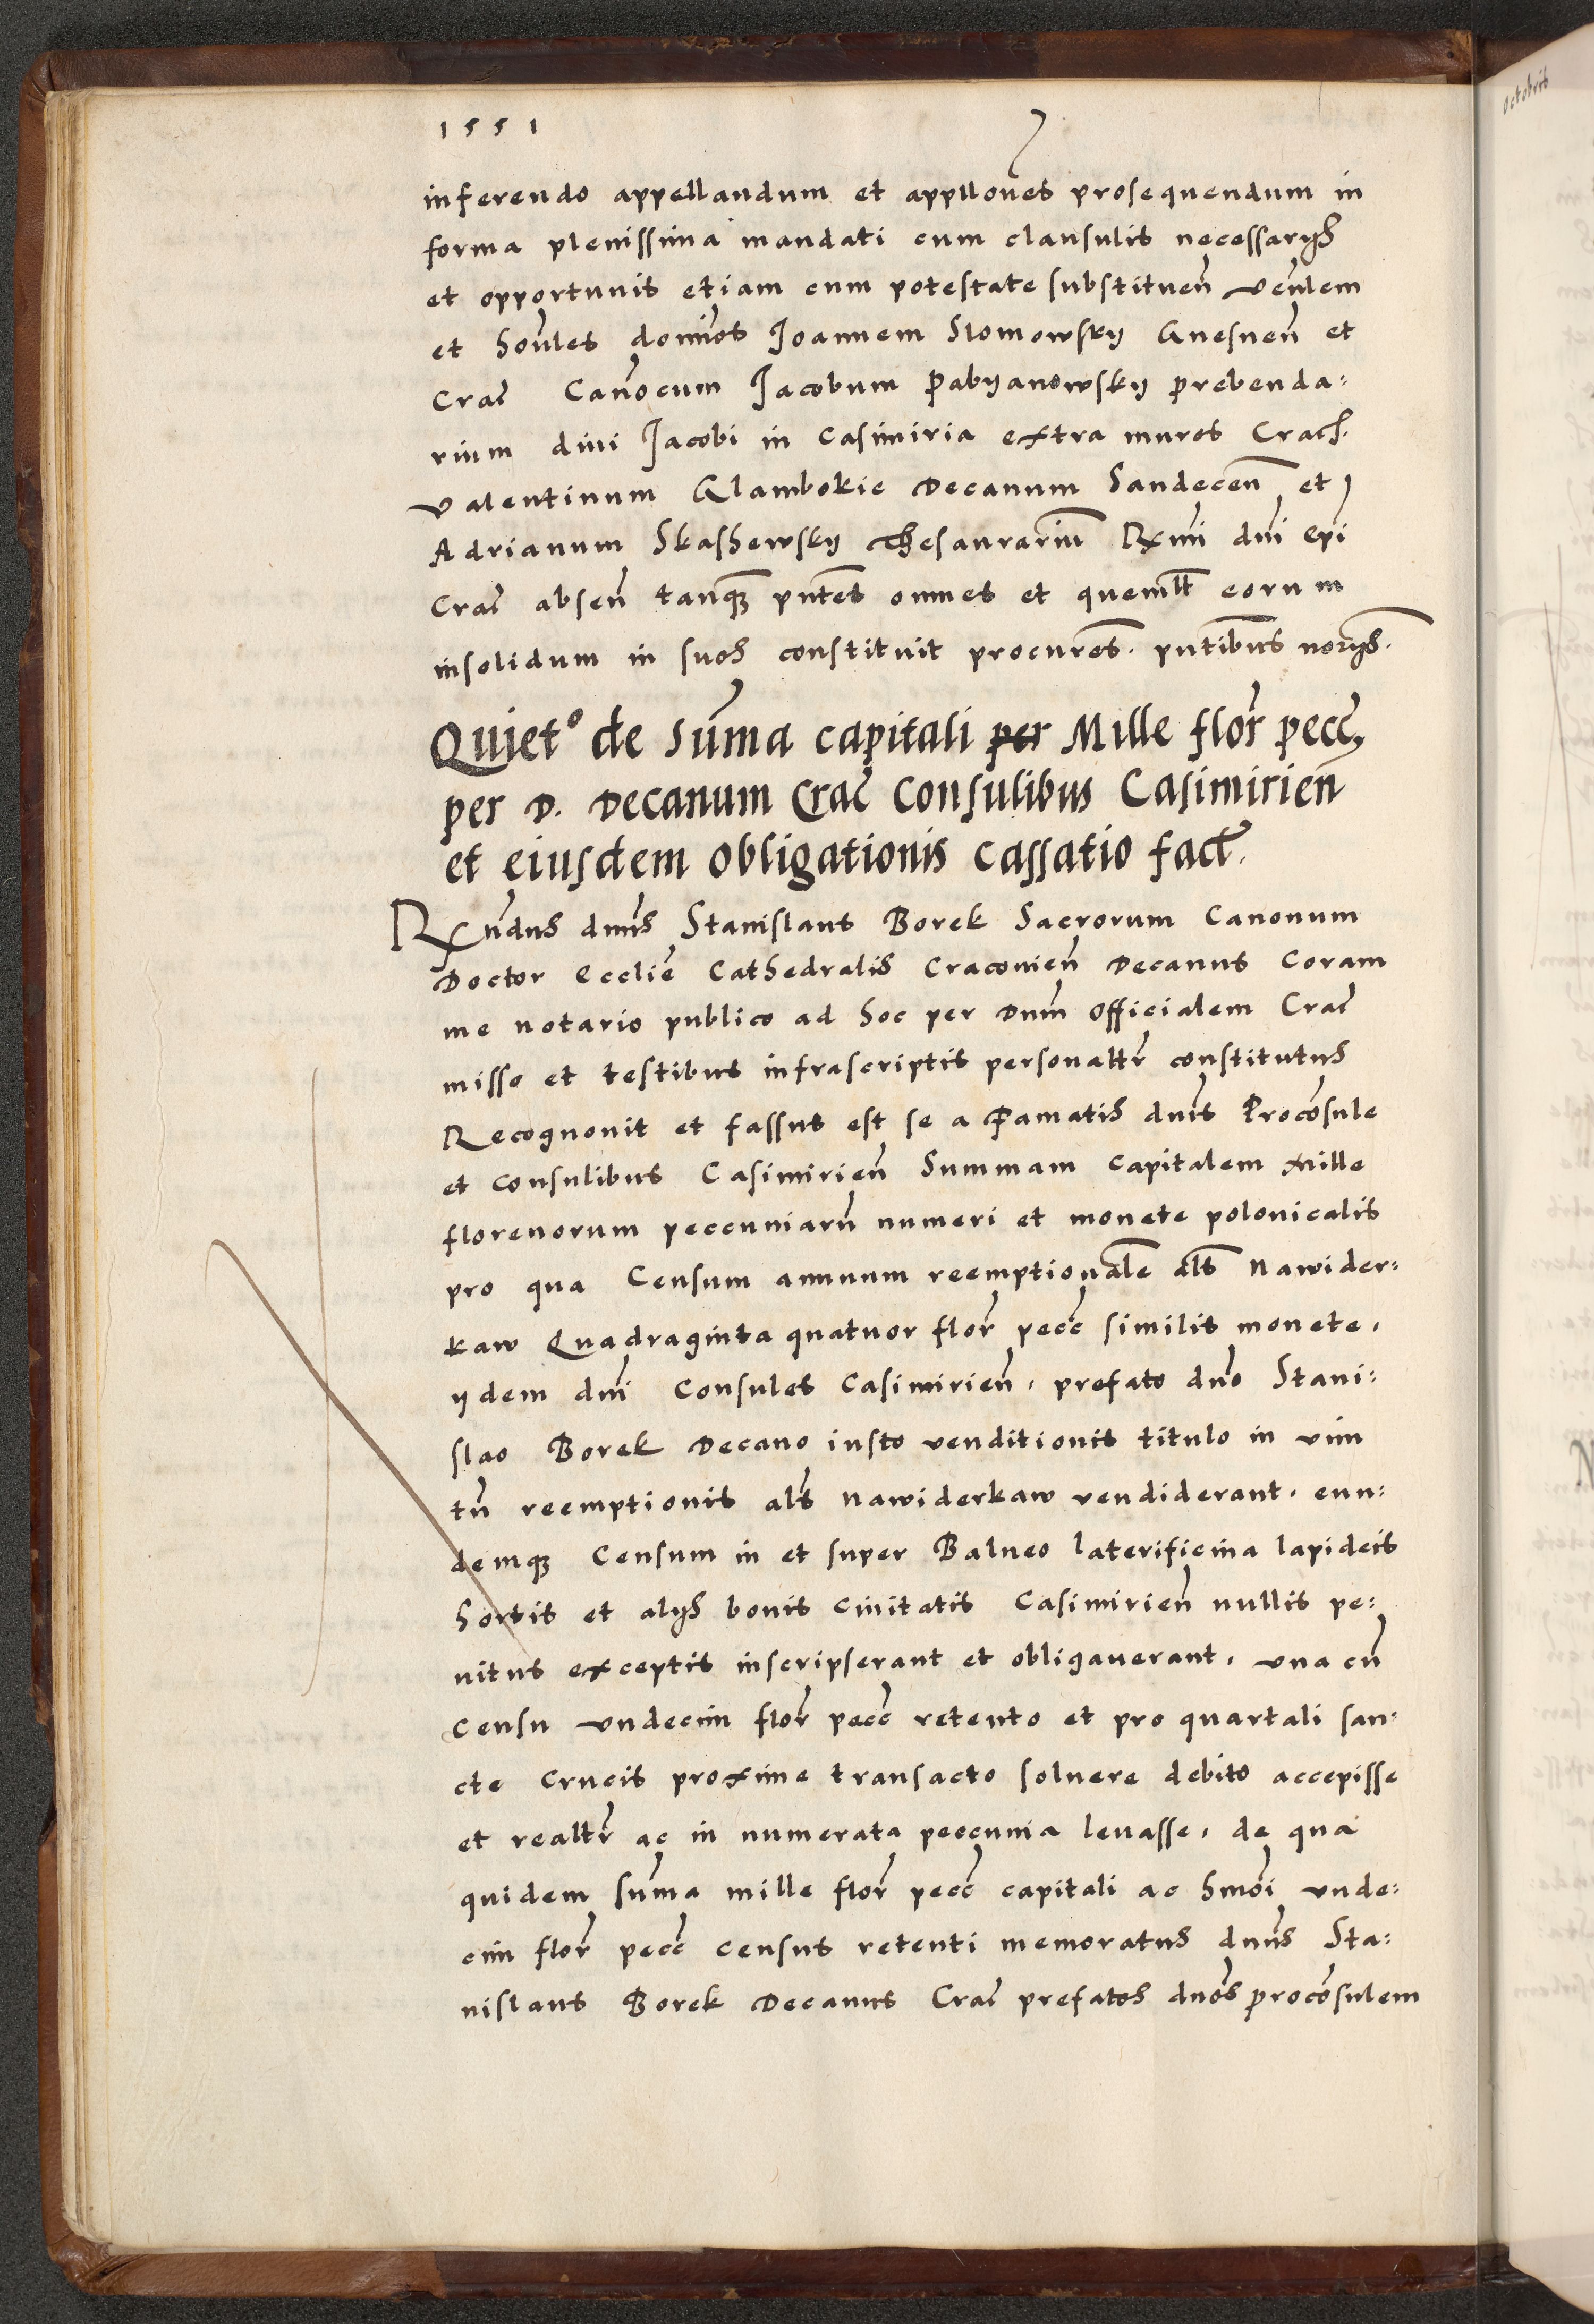 1551
octobris
inferendo appellandum et appllones prosequendum in
forma plenissima mandati cum clausulis necessarijs
et opportunis etiam cum potestate substituen̄ venlem
et honles dominos Joannem Slomowskij Gnesnen̄ et
Crac̄ Canocum Jacobum Pabyanowskij prebenda:
rium diui Jacobi in Casimiria extra muros Crach.
Valentinum Glambokie Decanum Sandecen̄ et
Adrianum Skashewskij thesaurarium Rxmi dni Epi
Crac̄ absen̄ tanq̄ȝ pntes omnes et quemlt eorum
insolidum in suos constituit procures. pntibus norijs.
Quietº de sum̄a capitali per Mille flor̄ pecc̄,
per D. Decanum Crac̄ Consulibus Casimirien̄
et eiusdem obligationis cassatio fact̄.
Rxndus dnus Stanislaus Borek Sacrorum Canonum
Doctor Ecclie Cathedralis Cracouien̄ Decanus Coram
me notario publico ad hoc per Dnm Officialem Crac̄
misso et testibus infrascriptis personaltr̄ constitutus
Recognouit et fassus est se a Famatis dnis Procōsule
et Consulibus Casimirien̄ Summam capitalem Mille
florenorum peccuniarū numeri et monete polonicalis
pro qua Censum annuum reemptionale als Nawider:
kaw Quadraginta quatuor flor̄ pecc̄ similis monete,
ijdem dni Consules Casimirien̄, prefato dno Stani:
slao Borek Decano iusto venditionis titulo in vim
tn̄ reemptionis als Nawiderkaw vendiderant, eun:
demqȝ Censum in et super Balneo laterificina lapideis
hortis et alijs bonis Ciuitatis Casimirien̄ nullis pe:
nitus exceptis inscripserant et obligauerant, vna cū
Censu vndecim flor̄ pecc̄ retento et pro quartali san:
cte Crucis proxime transacto soluere debito accepisse
et realtr̄ ac in numerata peccunia leuasse, de qua
quidem sum̄a mille flor̄ pecc̄ capitali ac hmōi vnde:
cim flor̄ pecc̄ census retenti memoratus dnus Sta:
nislaus Borek Decanus Crac̄ prefatos dnos procōsulem